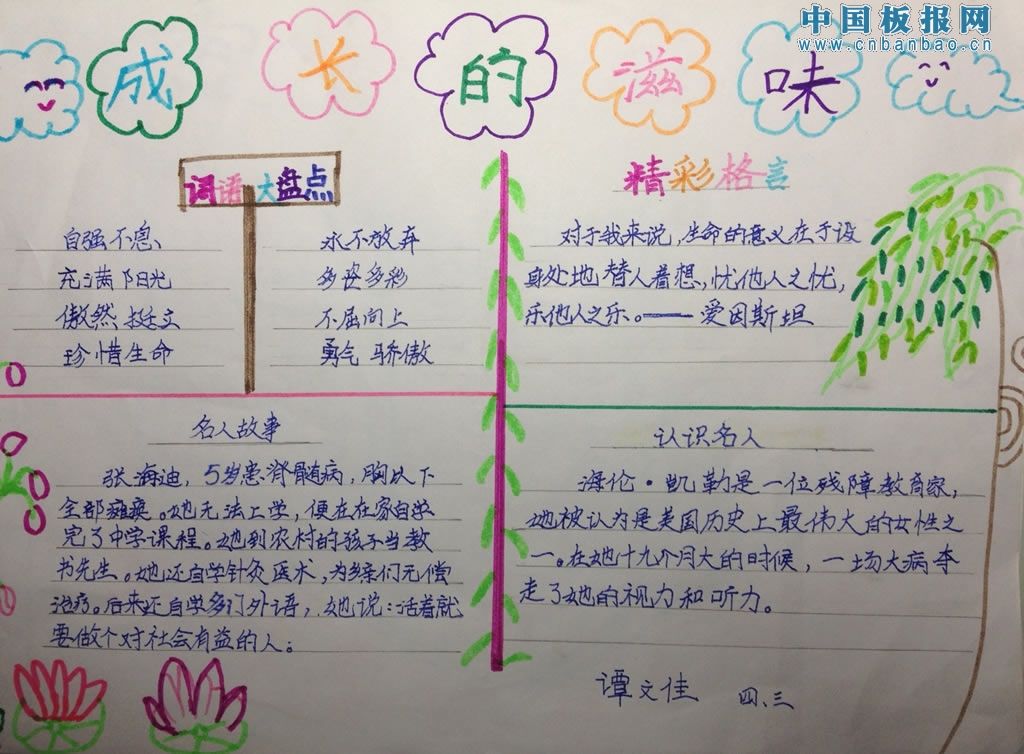 中国板报网
www.cnbanbao.cn
成长的滋味
词语大盘点
自强不息 永不放弃
充满阳光 多姿多彩
傲然挺立 不屈向上
珍惜生命 勇气 骄傲
精彩格言
对于我来说,生命的意义在于设
身处地替人着想,忧他人之忧,
乐他人之乐。——爱因斯坦
名人故事
张海迪,5岁患脊髓病,胸以下
全部瘫痪。她无法上学,便在在家自学
完了中学课程。她到农村的孩子当教
书先生。她还自学针灸医术,为乡亲们无偿
治疗。后来还自学多门外语,她说:活着就
要做个对社会有益的人。
认识名人
海伦·凯勒是一位残障教育家,
她被认为是美国历史上最伟大的女性之
一。在她十九个月大的时候,一场大病夺
走了她的视力和听力。
谭文佳 四、三